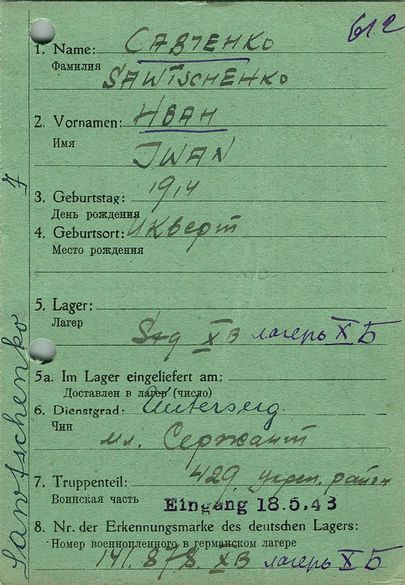 612
1. Name: САВЧЕНКО
Фамилия
SAWTSCHENKO
2. Vornamen: ИВАН
Имя
IWAN
3. Geburtstag: 1914
День рождения
4. Geburtsort:
Место рождения
5. Lager:
Лагер
Stg XB лагерь X Б
5a. Im Lager eingeliefert am:
Доставлен в лагер (число)
6. Dienstgrad: Unterserg
Чин
мл. Сержант
7. Truppenteil: 429. укреп. район
Воинская часть
Eingang 18.5.43
8. Nr. der Erkennungsmarke des deutschen Lagers:
Номер военнопленного в германском лагере
141.878. XB лагерь X Б
Sawtschenko J